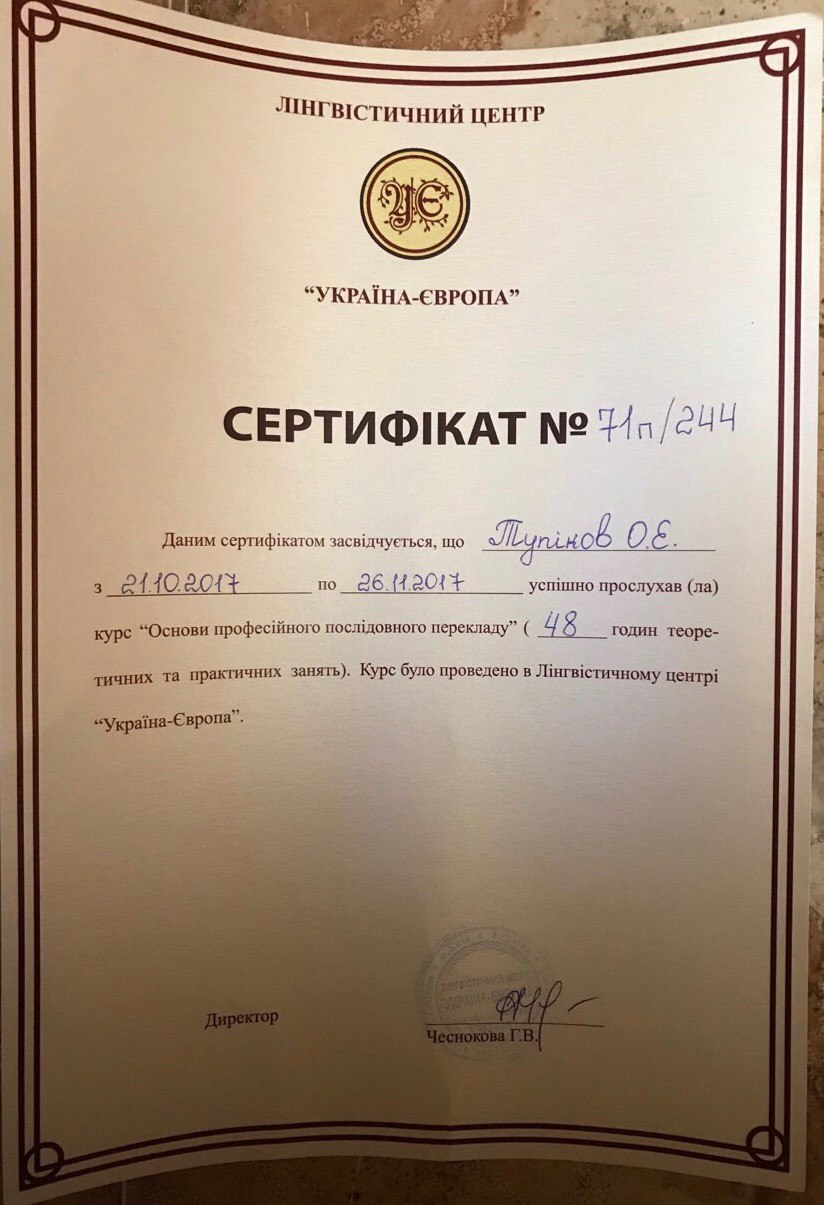 ЛІНГВІСТИЧНИЙ ЦЕНТР
УЄ
“УКРАЇНА-ЄВРОПА”
СЕРТИФІКАТ № 71п/244
Даним сертифікатом засвідчується, що Тупінов О.Є.
з 21.10.2017 по 26.11.2017 успішно прослухав (ла)
курс “Основи професійного послідовного перекладу” ( 48 годин теоре-
тичних та практичних занять). Курс було проведено в Лінгвістичному центрі
“Україна-Європа”.
ЛІНГВІСТИЧНИЙ ЦЕНТР
Директор
Чеснокова Г.В.